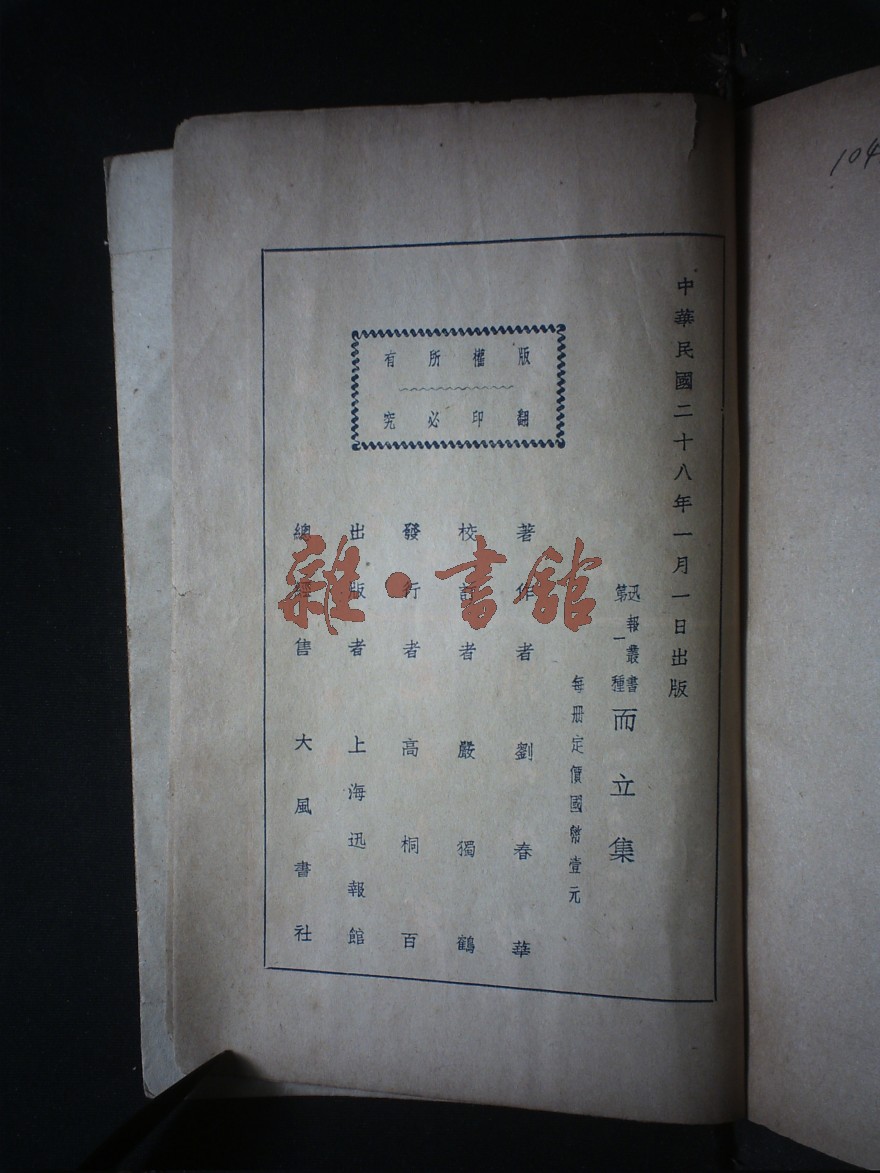 104
中華民國二十八年一月一日出版
迅報叢書
第一種
而立集
每册定價國幣壹元
版權所有
翻印必究
著作者 劉春華
校訂者 嚴獨鶴
發行者 高桐百
出版者 上海迅報館
總經售 大風書社
雜·書館